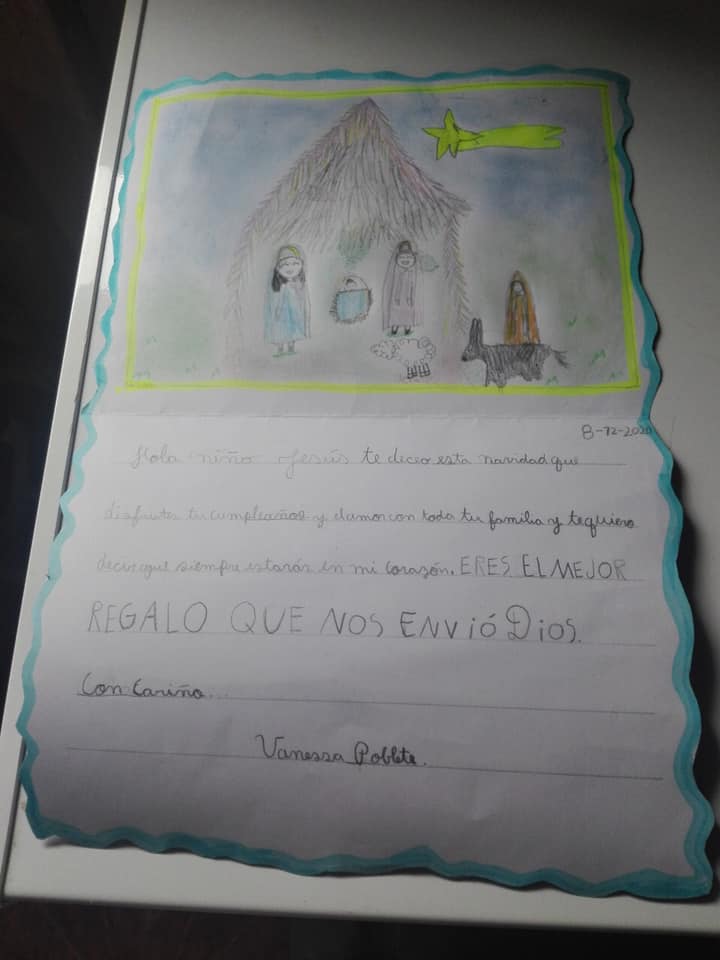 8-12-2020
Hola niño Jesús te deceo esta navidad que
disfrutes tu cumpleaños y el amor con toda tu familia y te quiero
decir que siempre estarás en mi corazón. ERES EL MEJOR
REGALO QUE NOS ENVIÓ DIOS.
Con Cariño...
Vanessa Poblete.